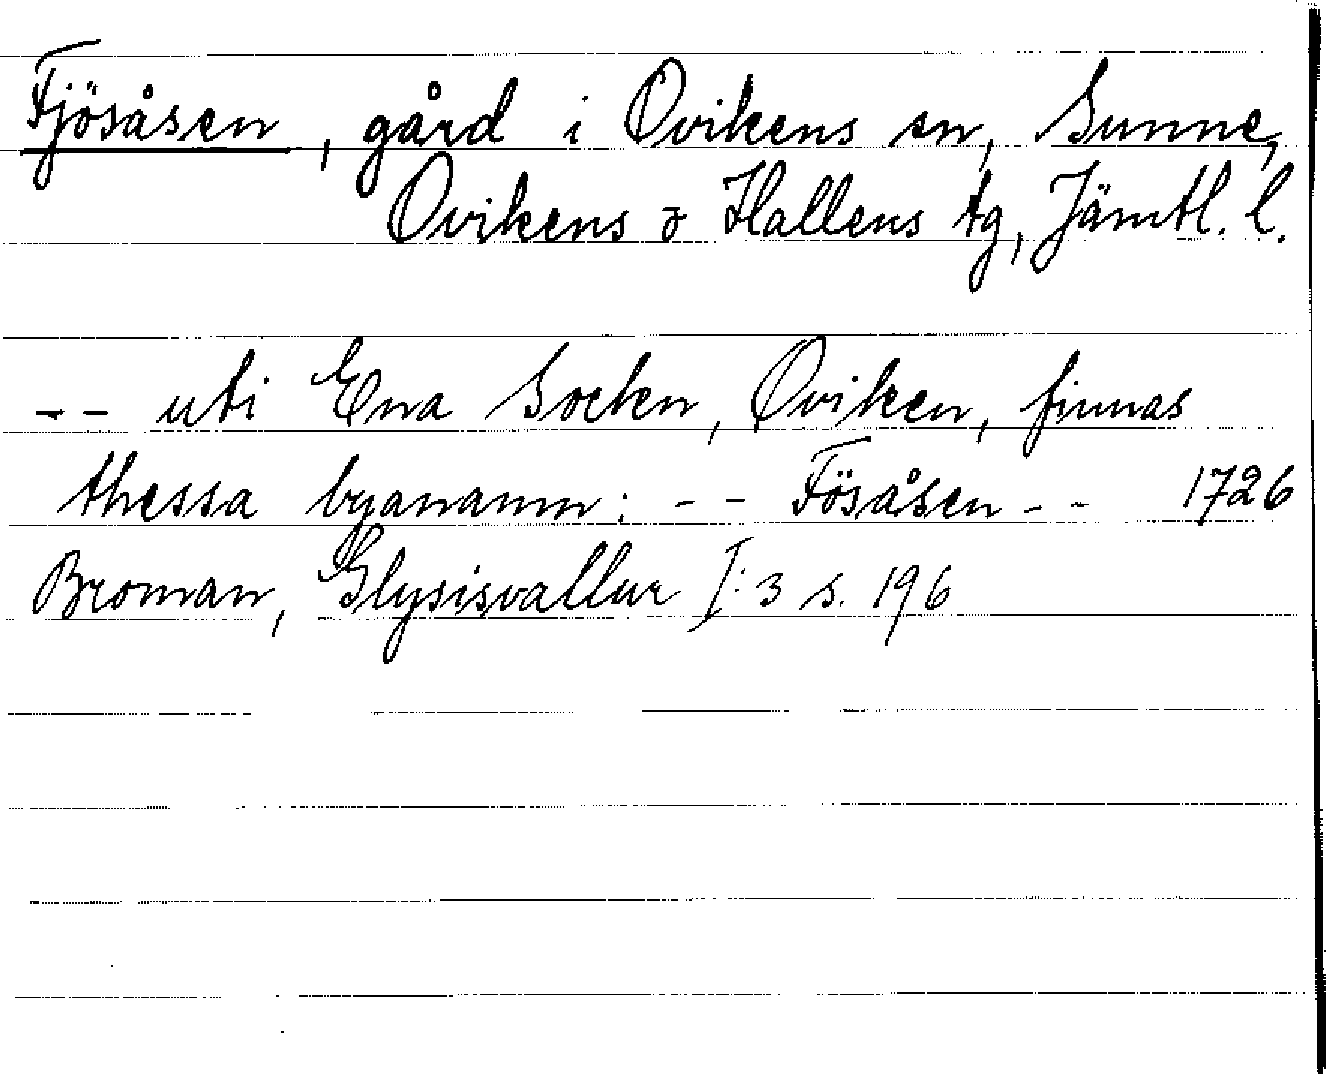 Fjösåsen, gård i Ovikens sn, Sunne,
Ovikens o Hallens tg, Jämtl. l.
-- uti Ena Sockn, Oviken, finnas
thessa byanamn: -- Fösåsen -- 1726
Broman, Glysisvallur I:3 s. 196